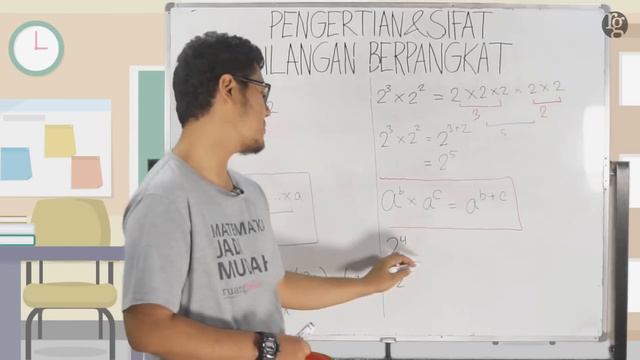 PENGERTIAN & SIFAT
BILANGAN BERPANGKAT
rg
2
2³ × 2² = 2 × 2 × 2 × 2 × 2
3
2
5
2³ × 2² = 2³⁺²
= 2⁵
...× a
aᵇ × aᶜ = aᵇ⁺ᶜ
2⁴
2
MATEMATIKA
JADI
MUDAH